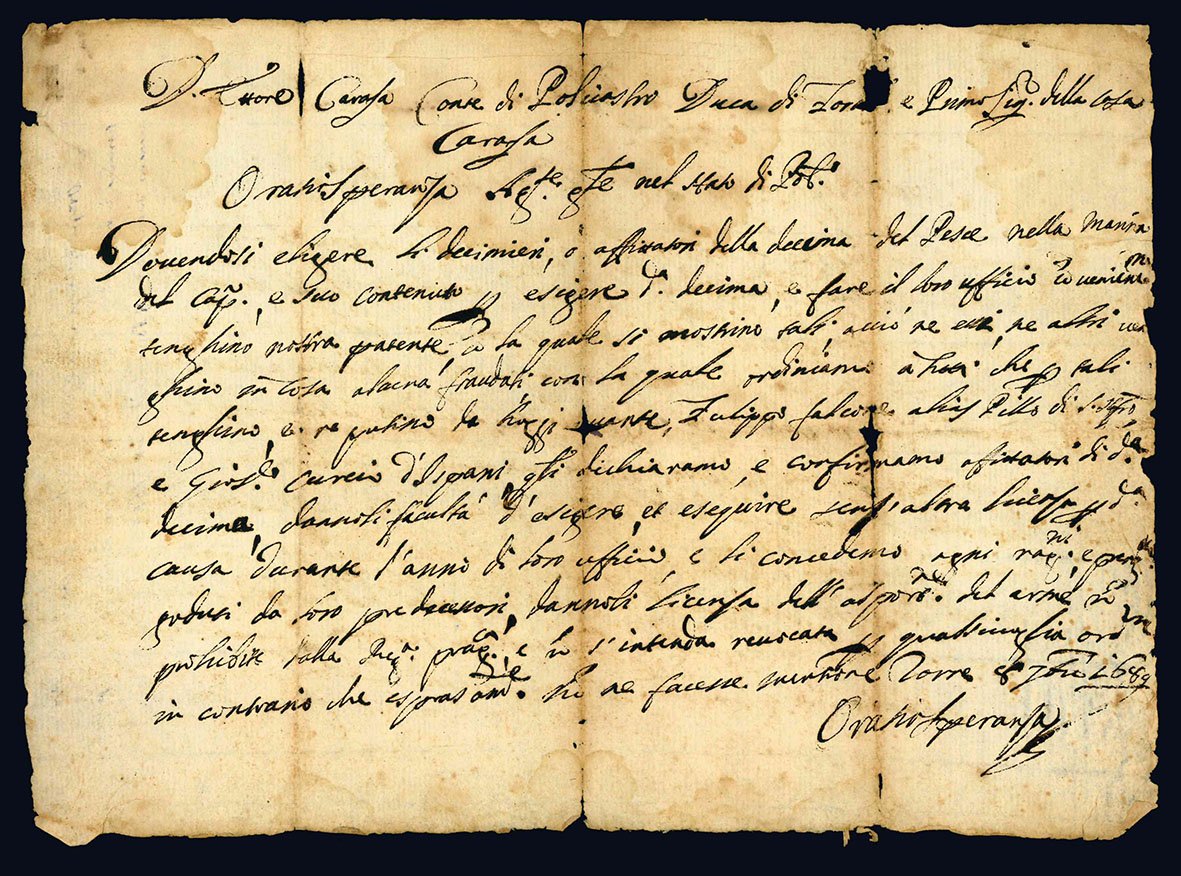 D. Ettore Carafa Conte di Policastro Duca di e Primo Sig.r della Casa
Carafa
Oratio Speranza Ag.te g.le nel stato di Pol.o
Dovendosi eligere li decimieri, o affittatori della decima del Pesce nella Marina
del Cap.o, e suo contenuto p esigere d.a decima, e fare il loro ufficio
tenghino nostra patente, p la quale si mostrino tali, acciò ne essi, ne altri ven
ghino in cosa alcuna fraudati con la quale ordiniamo a tutti che p tali
tenghino, e reputino da hoggi avante, Filippo falcone alias Pillo di
e Gios.e Curcio d'Ispani, gli dichiaramo, e confirmamo affittatori di d.a
decima, dannoli facultà d'esigere, et eseguire senz'altra licenza p d.a
causa durante l'anno di loro ufficio, e li concedemo ogni
goduti da loro predecessori, dannoli licenza dell' del arme
prohibite dalla Reg.a pram.ca, e s'intenda revocata p qualsivoglia ord
in contrario che espressam.te ne facesse mentione Torre 8 7bre 1689
Oratio Speranza.